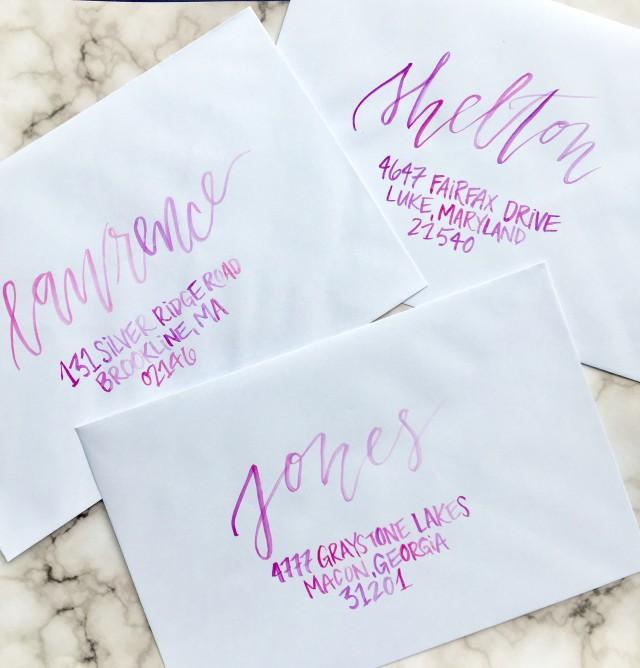 Lawrence
131 SILVER RIDGE ROAD
BROOKLINE, MA
02146
shelton
4647 FAIRFAX DRIVE
LUKE, MARYLAND
21540
Jones
4777 GRAYSTONE LAKES
MACON, GEORGIA
31201